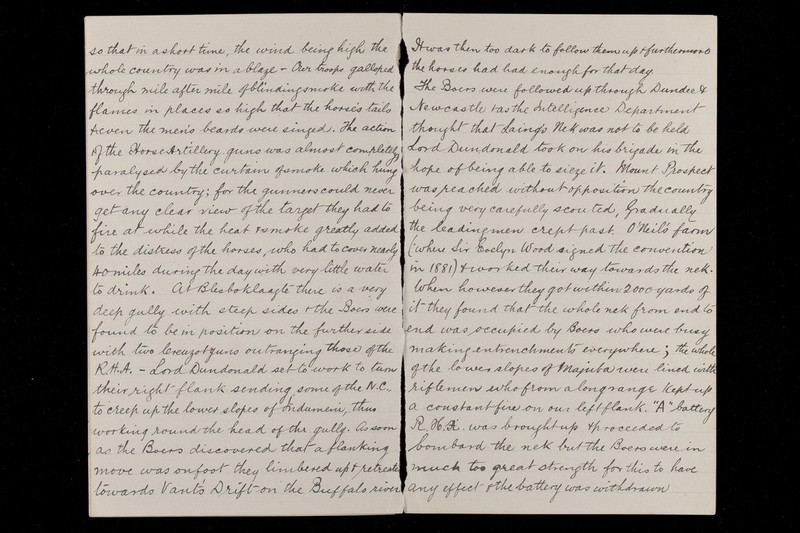 so that in a short time, the wind being high the
whole country was in a blaze - Our troops galloped
through mile after mile of blinding smoke with the
flames in places so high that the horse's tails
& even the men's beards were singed. The action
of the Horse Artillery guns was almost completely
paralysed by the curtain of smoke which hung
over the country; for the gunners could never
get any clear view of the target they had to
fire at while the heat & smoke greatly added
to the distress of the horses, who had to cover nearly
40 miles during the day with very little water
to drink. At Blesboklaagte there is a very
deep gully with steep sides & the Boers were
found to be in position on the further side
with two Creuzot guns outranging those of the
R.H.A. - Lord Dundonald set to work to turn
their right flank sending some of the N.C.
to creep up the lower slopes of Indumeni, thus
working round the head of the gully. As soon
as the Boers discovered that a flanking
move was on foot they limbered up & retreated
towards Vant's Drift on the Buffalo river
It was then too dark to follow them up & furthermore
the horses had had enough for that day.
The Boers were followed up through Dundee &
Newcastle & as the Intelligence Department
thought that Laing's Nek was not to be held
Lord Dundonald took on his brigade in the
hope of being able to sieze it. Mount Prospect
was reached without opposition the country
being very carefully scouted, Gradually
the leading men crept past O'Neil's farm
(where Sir Evelyn Wood signed the convention
in 1881) & worked their way towards the nek.
When however they got within 2000 yards of
it they found that the whole nek from end to
end was occupied by Boers who were busy
making entrenchments everywhere; the whole
of the lower slopes of Majuba were lined with
riflemen who from a long range kept up
a constant fire on our left flank. "A" battery
R.H.A. was brought up & proceeded to
bombard the nek but the Boers were in
much too great strength for this to have
any effect & the battery was withdrawn